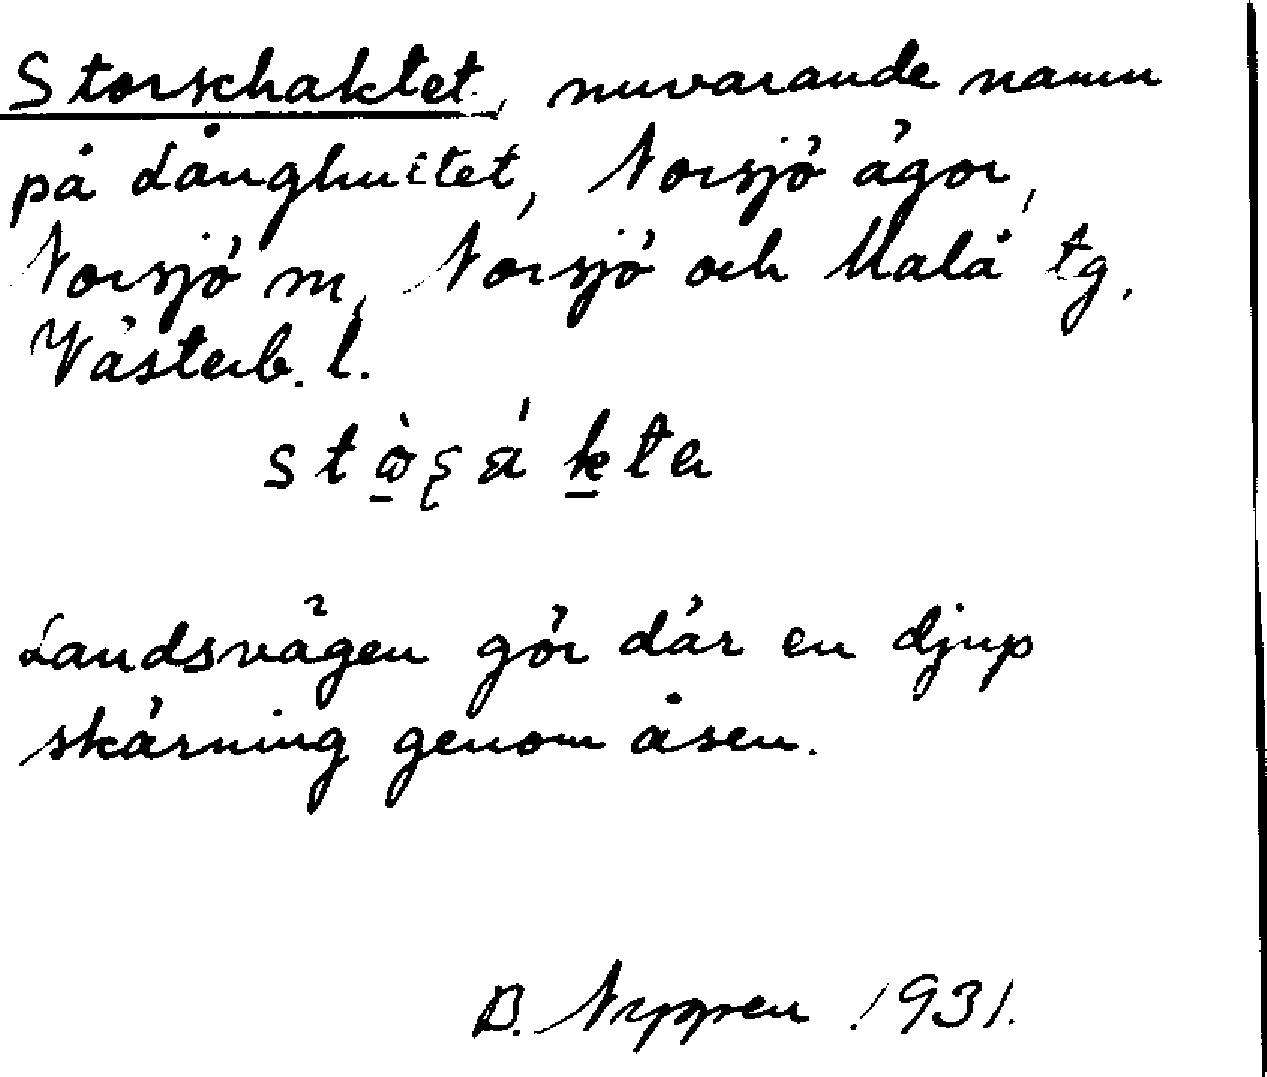 Storschaktet, nuvarande namn
på Långhultet, Norsjö ägor,
Norsjö m, Norsjö och Malå tg,
Västerb. l.
Landsvägen gör där en djup
skärning genom åsen.
B. Nygren 1931.